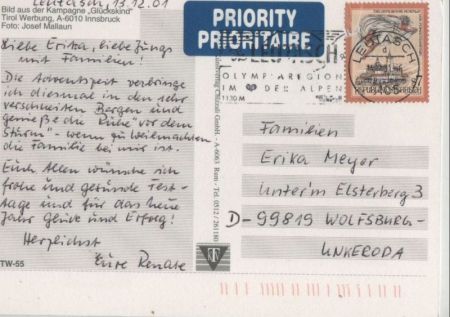 Leutasch, 13.12.01
Bild aus der Kampagne „Glückskind"
Tirol Werbung, A-6010 Innsbruck
Foto: Josef Mallaun
Liebe Erika, liebe Jungs
mit Familien!
Die Adventszeit verbringe
ich diesmal in den sehr
verschneiten Bergen und
genieße die Ruhe "vor dem
Sturm" - wenn zu Weihnachten
die Familie bei mir ist.
Euch Allen wünsche ich
frohe und gesunde Fest-
tage und für das neue
Jahr Glück und Erfolg!
Herzlichst
Eure Renate
TW-55
A-6063 Rum · Tel. 0512 / 261180
PRIORITY
PRIORITAIRE
LEUTASCH
OLYMPIAREGION
IM ♥ DER ALPEN
LEUTASCH
REPUBLIK ÖSTERREICH
Familien
Erika Meyer
Unter'm Elsterberg 3
D-99819 WOLFSBURG-
UNKERODA